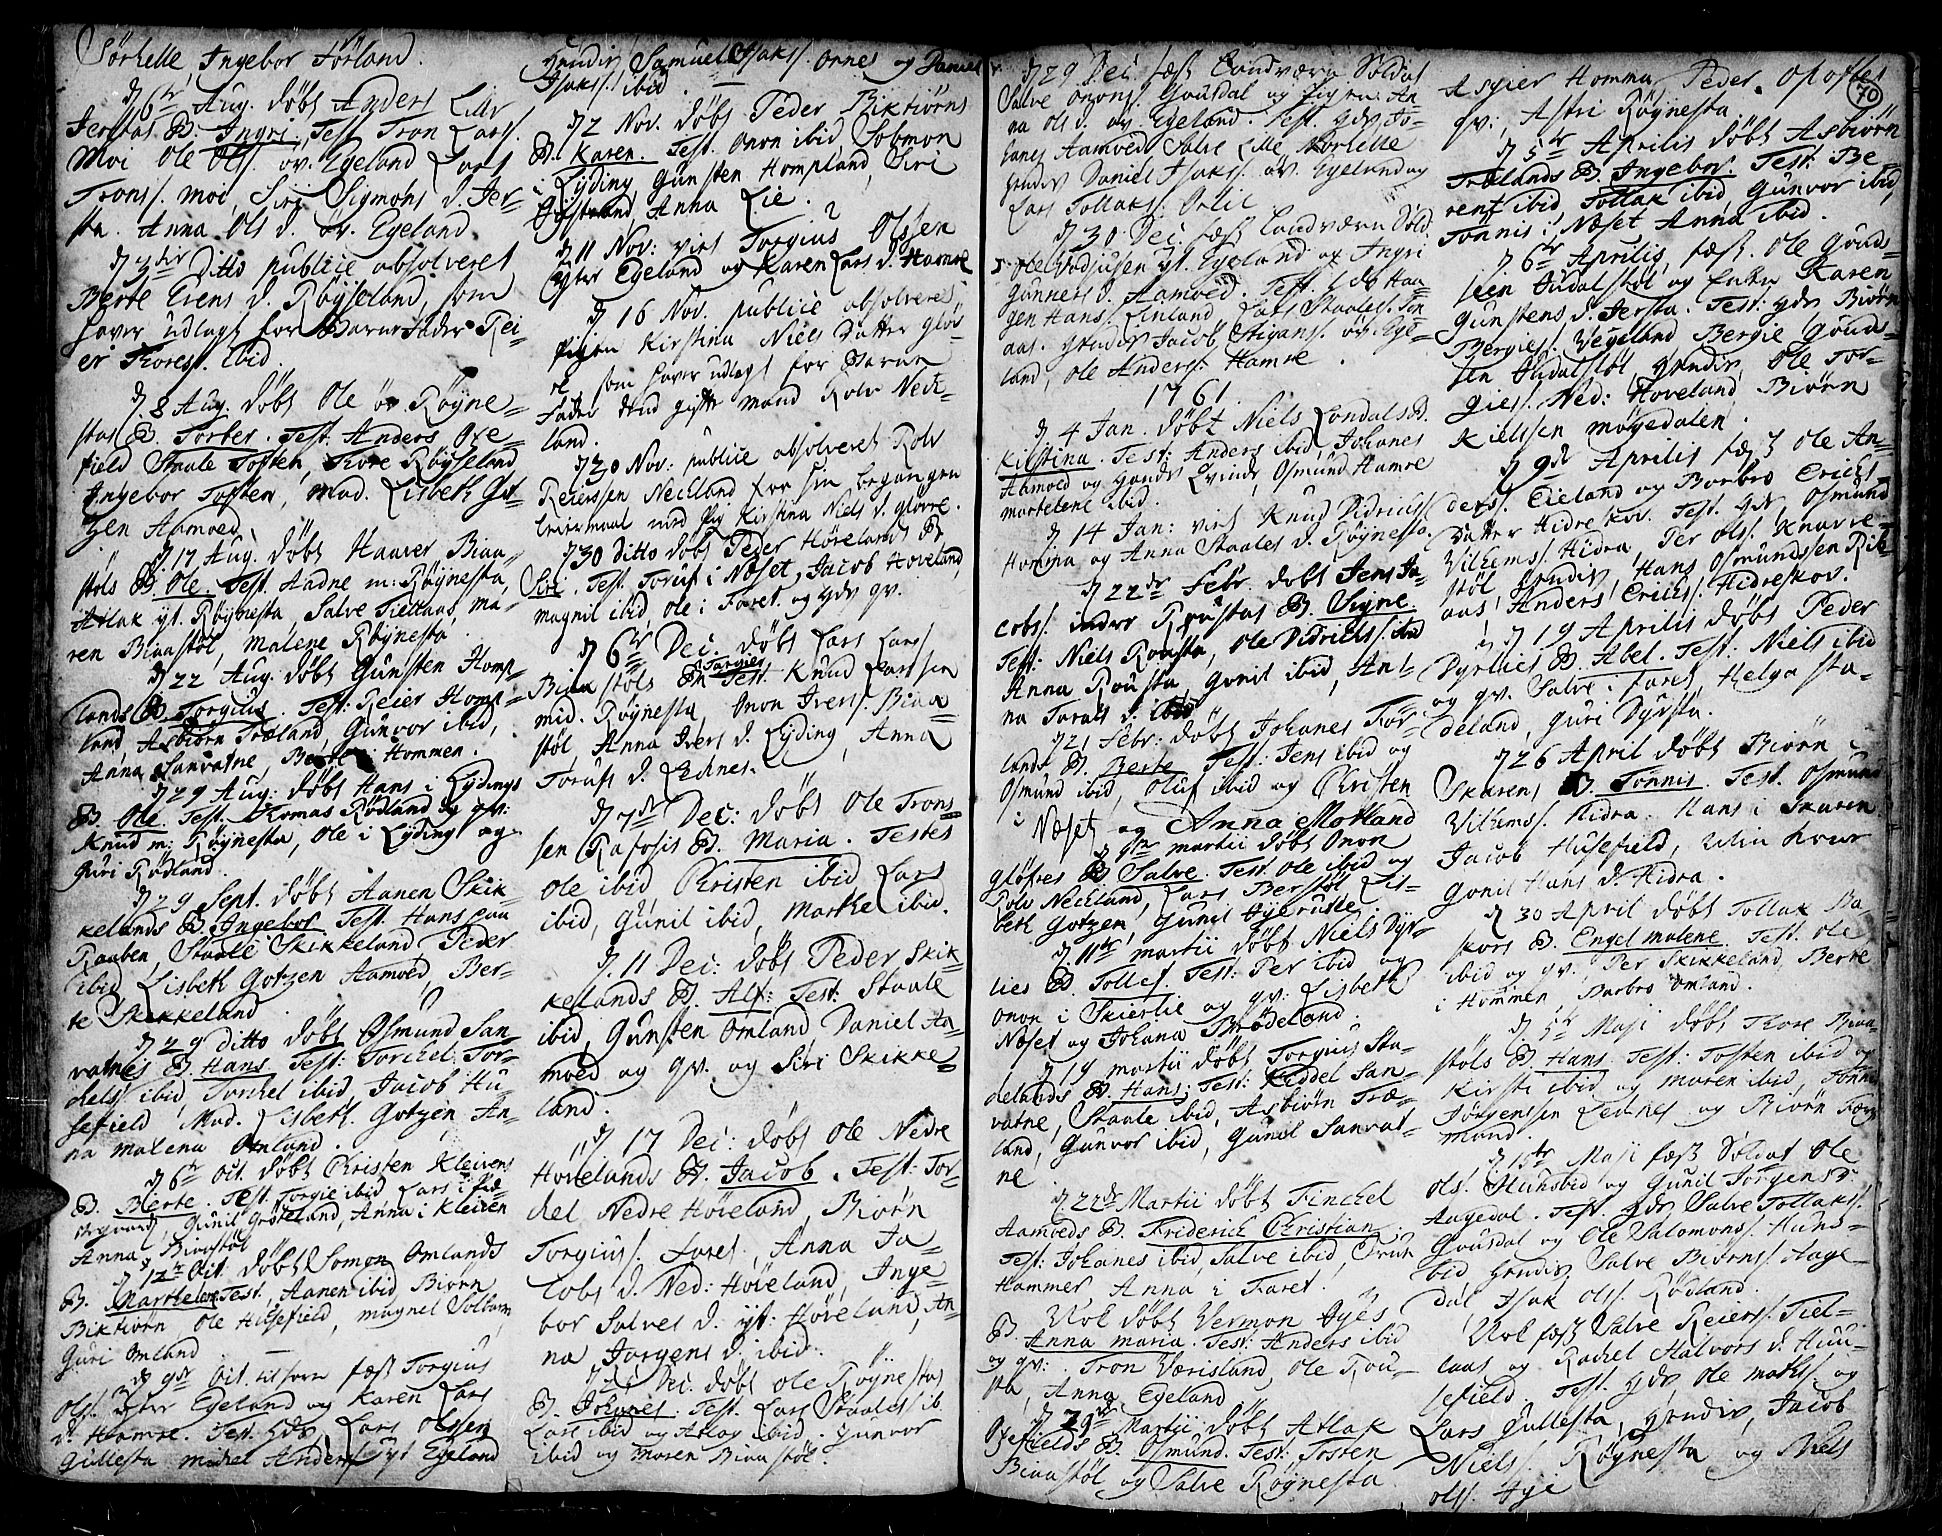 Sørhelle, Ingebor Førland.
d 6te Aug. døbt Anders Lille
Jerstas B. Ingri, Test. Tron Lars.
Moi Ole Ols. øv. Egeland Lars
Trons. moi, Siri Sigmons d. Jer-
sta. Anna Ols d. øv. Egeland
ditto publice absolveret
Berte Evens d. Røyseland, som
haver udlagt for Barne Fader Rei-
er Thores. ibid
d. 8 Aug. døbt Ole øv. Røyne-
stas B. Torber. Test. Anders Øve-
field Staale Tosten, Thore Røyseland
Ingebor Tosten, Mad. Lisbeth Got-
zen Aamoed.
d 17 Aug. døbt Haaver Biaa-
støls B. Ole. Test. Aadne m: Røynesta,
Atlak yt. Røynesta, Salve Tieldaas, Ma-
ren Biaastøl, Malene Røynesta.
d 22 Aug. døbt Gunsten Homp-
lands B. Torgius. Test: Reier Homp-
land Asbiørn Træland, Gunvor ibid,
Anna Sanvatne, Hommen.
d 29 Aug: døbt Hans i Lydings
B. Ole. Test. Thomas Rødland og qv:
Knud m: Røynesta, Ole i Lyding og
Guri Rødland.
d 29 Sept. døbt Aanen Skik-
kelands B. Ingebor. Test. Hans
Raaben, Staale Skikkeland, Peder
ibid Lisbeth Gotzen Aamoed, Ber-
te Skikkeland
d 29 ditto døbt Osmund San-
vatnes B. Hans Test: Torchel Tor-
chels. ibid, Torchel ibid, Jacob Hu-
sefield, Mad. Lisbeth Gotzen, An-
na malena Omland.
d 6te Oct. døbt Christen Kleivens
B. Berte. Test. Torgie ibid Lars i
Gunil Grøteland, Anna i Kleiven
Anna Biaastøl
d 12te Oct. døbt Somon Omlands
B. Marthe Test. Aanen ibid, Biørn
Biktiørn Ole Husefield, magnel Solbiørn
Guri Omland
d 9de Oct. til forn fæst Torgius
Ols. yster Egeland og Karen Lars
d. Hamre. Test. Lars Olssen
Gullesta Michel Anders. yt Egeland
Hendir Samuel Isaks. Ornes og Daniel
Isaks. ibid.
d 2 Nov. døbt Peder Biktiørns
B. Karen. Test. Onon ibid, Solomon
i Lyding, Gunsten Hompland, Siri
Anna Lie.
d 11 Nov: viet Torgius Olssen
yster Egeland og Karen Lars d. Hamre
d 16 Nov. publice absolveret
pigen Kirstina Niels Datter Gløv-
re, som haver udlagt for Barne
Fader dend gifte mand Rolv Neck-
land.
d 20 Nov: publice absolveret Rolv
Reierssen Neckland for sin begangen
Leiermaal med Pig Kirstina Niels d. gløvre.
d 30 ditto døbt Peder Hølelands B.
Siri. Test. Toruf i Næset, Jacob Hoveland,
magnil ibid, Ole i Faret og hds qv.
d 6te Dec. døbt Lars Lars
Biaastøls B. Torgier Test. Knud Larssen
mid. Røynesta, Onon Ivers. Biaa-
støl, Anna Ivers d. Lyding, Anna
Torufs d. Lednes.
d 7de Dec: døbt Ole Trons-
sen Rafosis B. Maria. Testes
Ole ibid Christen ibid Lars
ibid, Gunil ibid, Marthe ibid.
d. 11 Dec: døbt Peder Skik-
kelands B. Alf: Test: Staale
ibid, Gunsten Omland, Daniel Aa-
moed og qv. og Siri Skikke-
land.
d 17 Dec: døbt Ole Nedre
Hovelands B. Jacob. Test: Tor-
chel Nedre Høveland, Biørn
Torgius. Fares, Anna Ja-
cobs d. Ned: Høveland, Inge-
bor Salves d. yt: Høveland, An-
na Jørgens d. ibid.
Dec. døbt Ole Røynestas
B. Johanes. Test. Lars Staales ib.
Lars ibid og Atlag ibid. Gunvor
ibid og Maren Biaastøl.
d 29 Dec. fæst Landværn Soldat
Salve Onons. Gousdal og pigen An-
na Ols d. øv. Egeland. Test. hds Jo-
hanes Aamoed Salve Lille Sørhelle
Hendir Daniel Isaks. øv. Egeland og
Lars Tollaks. Orlie.
d 30 Dec. fæst Landværn Sold
Ole yt. Egeland og Ingri
Gunners d. Aamoed. Test. hds Haa-
gen Hans. Enland, Lars Staales.
aas. Hendir Jacob Stigans. øv. Ege-
land, Ole Anders. Hamre.
1761.
d 4 Jan. døbt Niels Londals B.
Kirstina. Test: Anders ibid, Johanes
Aamoed og hands Qvinde, Osmund Hamre
Martelene ibid.
d 14 Jan: viet Knud Didricks.
Homma og Anna Staales d. Røynesta.
d 22de Febr. døbt Jens Ja-
cobs. indre Roustas B. Signe.
Test: Niels Rousta, Ole Didricks. ibid
Anna Rousta, Gunil ibid, An-
na Torals d. ibid
d 21 Febr: døbt Johanes Før-
lands B. Berte Test: Jens ibid og
Osmund ibid, Oluf ibid og Christen
i Næset og Anna Motland
d 8de martii døbt Onon
gløfres B. Salve. Test. Ole ibid og
Rolv Neckland, Lars Berstøl, Lis-
beth Gotzen, Gunil
d. 11te martii døbt Niels Dyr-
lies B. Tolles. Test: Per ibid og
Onon i Skierlie og qv: Lisbeth
Næset og Johana Brødeland.
d 19 martii døbt Torgius Sta-
delands B. Hans; Test: Keddel San-
vatne, Staale ibid, Asbiørn Træ-
land, Gunvor ibid, Gunil Sanvat-
ne
d 22de Martii døbt Tinchel
Aamoeds B. Friderich Christian.
Test: Johanes ibid, Salve ibid,
Hammer Anna i Faret.
Nok døbt Vermon Ayes
B. Anna maria. Test: Anders ibid
og qv: Tron Værisland, Ole Rou-
sta, Anna Egeland
d 29de Martii døbt Atlak
Øvefields B. Osmund. Test: Tosten
Biaastøl og Salve Røynesta
Asgier Homma Peder Opofte
qv; Astri Røynesta.
d 5te Aprilis døbt Asbiørn
Trælands B. Ingebor. Test: Be-
rent ibid Tollak ibid, Gunvor ibid,
Tønnis i Næset Anna ibid.
d 6te Aprilis, fæst. Ole Gunds-
sen Judalstøl og Enke Karen
Gunstens d. Jersta. Test: hds Biørn
Bergies. Vegeland Bergie Gunds-
sen Judalstøl, Hendir Ole Tor-
gies. Ned: Hoveland, Biørn
Kielssen møgedalen.
d 9de Aprilis fæst Ole An-
ders. Eieland og Barbro Erichs
Datter Hidreskov. Test. hds Osmund
Vilhems. Hidra, Per Ols. Knarre-
støl, Hendir, Hans Osmundssen Rib-
aas, Anders Erichs. Hidreskov.
d 19 Aprilis døbt Peder
Dyrlies B. Abel. Test. Niels ibid
og qv. Salve i Faret, Helga Sta-
deland, Guri Dyrsta.
d 26 April døbt Biørn
Skarens B. Tønnis. Test. Osmund
Vilhems. Hidra. Hans i Skaren
Jacob Husefield,
Gunil Hans d. Hidra.
d 30 April døbt Tollak Ba-
skors B. Engel malene. Test. Ole
ibid og qv. Per Skikkeland, Berte
i Hommen, Barbro Omland.
d 5te Maji døbt Thore Biaa-
støls B. Hans. Test: Tosten ibid og
Kirsti ibid og Maren ibid, Tønne
Jørgenssen Lednes og Biørn
mund.
d 13te Maji fæst Soldat Ole
Ols. Hunsbid og Gunil Jørgens D.
Aagedal. Test. hds Salve Tollaks.
Gousdal og Ole Salomons. Huns-
bid Hendir Salve Biørns. Aage
dal Isak Ols. Rødland.
Nok fæst Salve Reiers. Tiel-
laas og Rachel Halvors d. Huu-
sefield. Test. hds Ole Mathis. og
Lars Gullesta, Hendir, Jacob
Niels. Røynesta og Niels
Ols. Aye
70